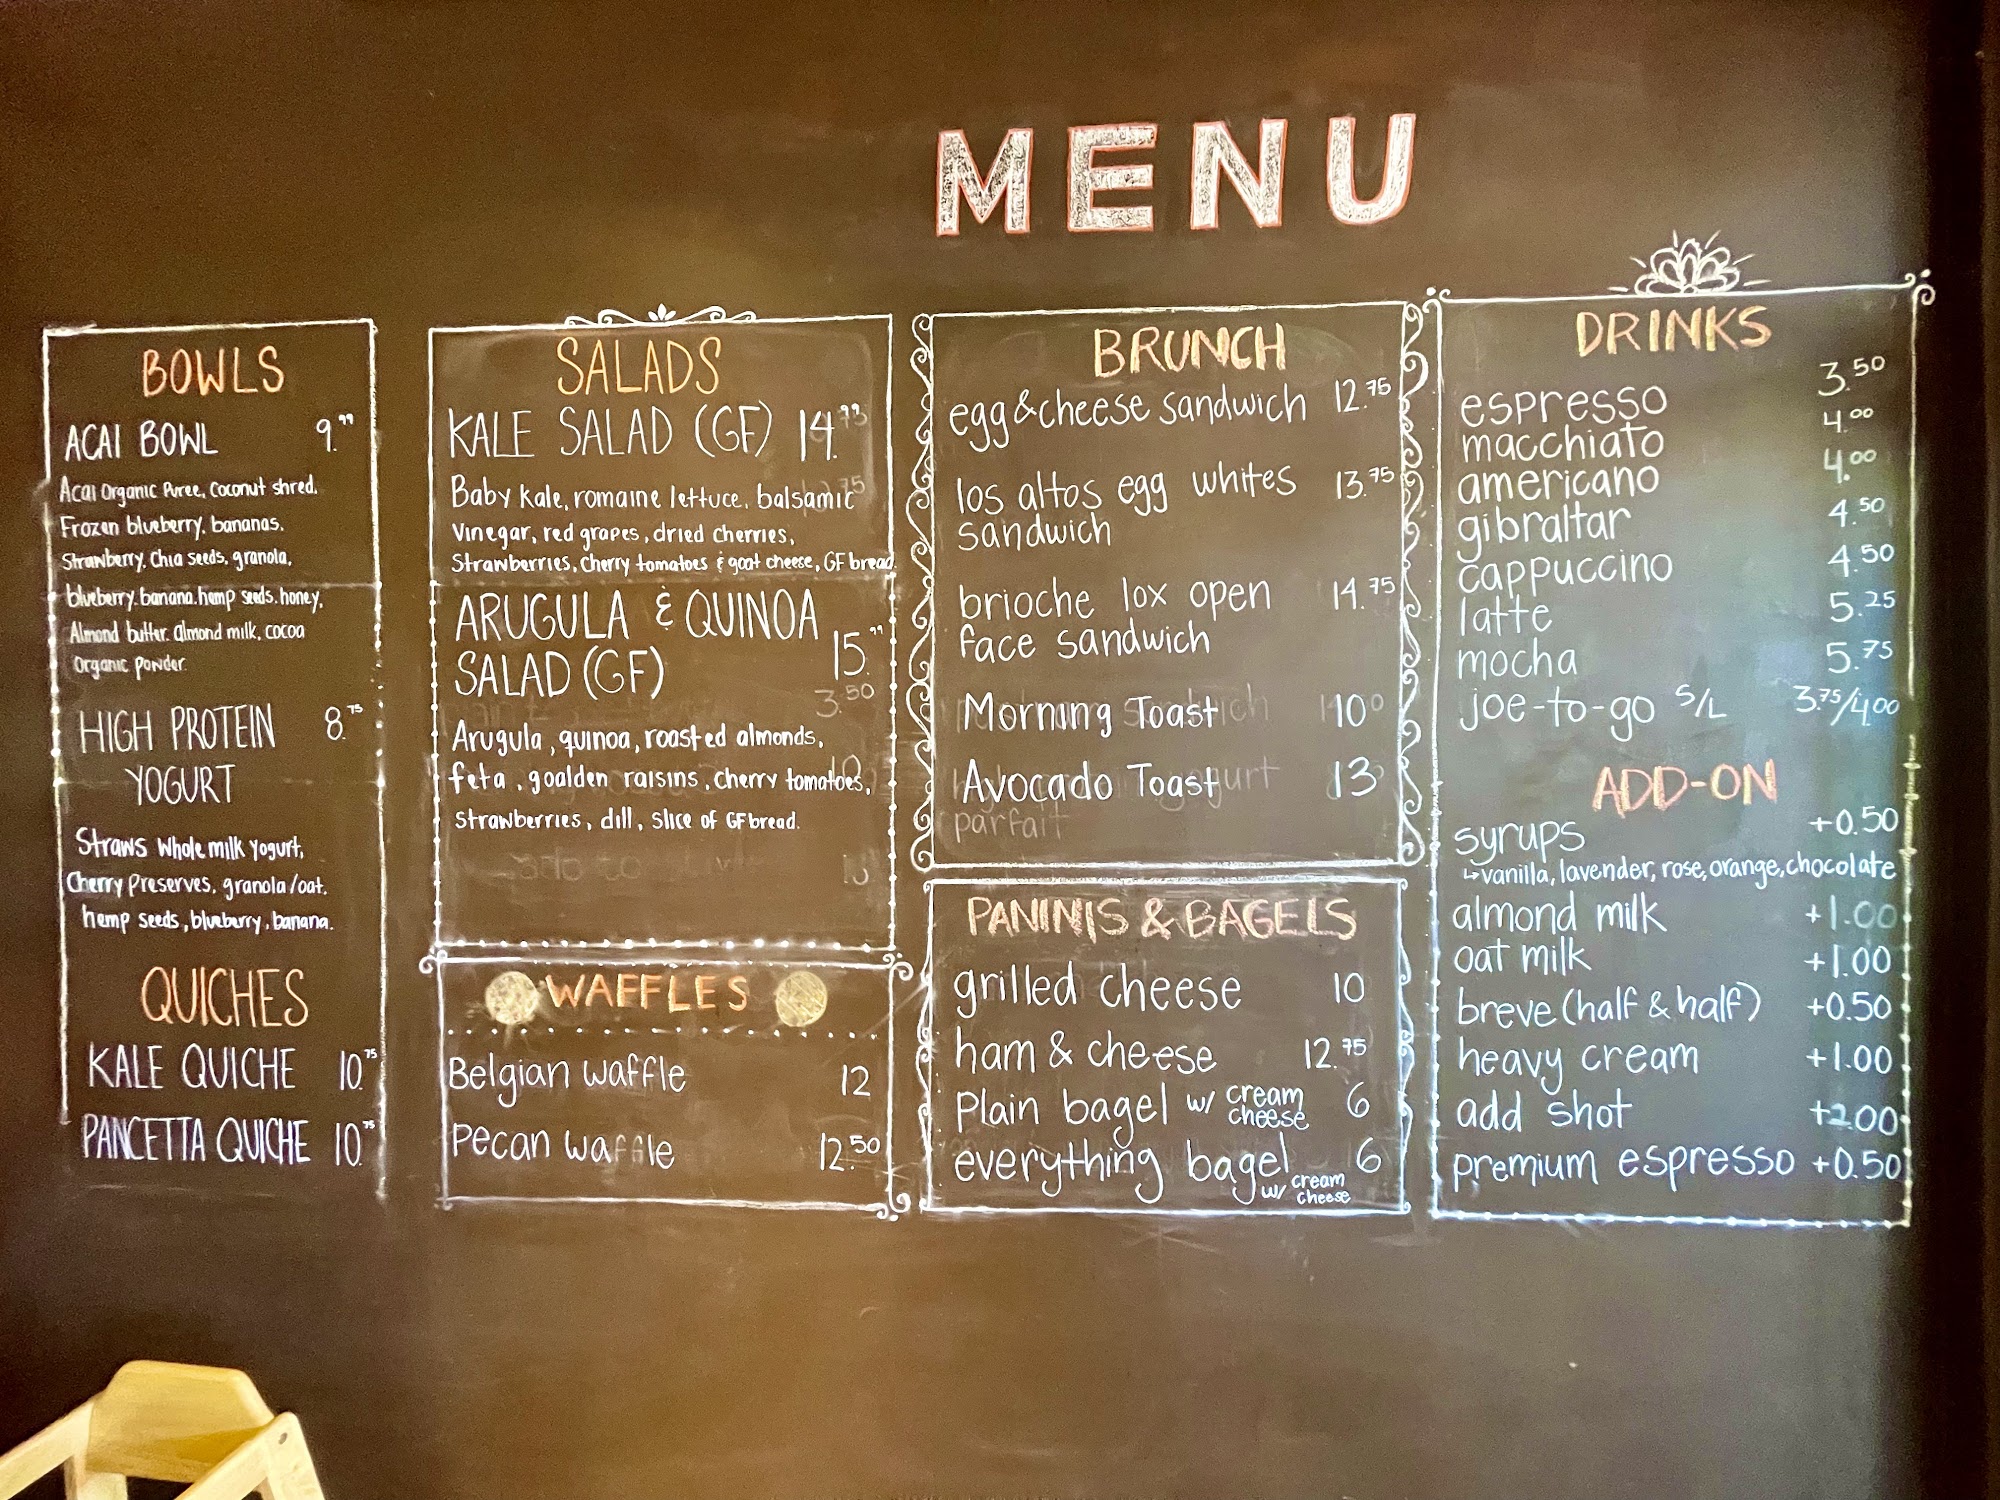 MENU
BOWLS
ACAI BOWL 9.99
Acai Organic Puree, Coconut shred,
Frozen blueberry, bananas,
Strawberry, Chia seeds, granola,
blueberry, banana, hemp seeds, honey,
Almond butter, almond milk, cocoa
Organic powder.
HIGH PROTEIN 8.75
YOGURT
Straws Whole milk Yogurt,
Cherry Preserves, granola/oat,
hemp seeds, blueberry, banana.
QUICHES
KALE QUICHE 10.75
PANCETTA QUICHE 10.75
SALADS
KALE SALAD (GF) 14.99
Baby Kale, romaine lettuce, balsamic
Vinegar, red grapes, dried cherries,
Strawberries, Cherry tomatoes & goat cheese, GF bread.
ARUGULA & QUINOA
SALAD (GF) 15.99
3.50
Arugula, quinoa, roasted almonds,
feta, goalden raisins, cherry tomatoes,
Strawberries, dill, Slice of GF bread.
WAFFLES
Belgian waffle 12
Pecan waffle 12.50
BRUNCH
egg & cheese sandwich 12.75
los altos egg whites 13.75
sandwich
brioche lox open 14.75
face sandwich
Morning Toast 10
Avocado Toast 13
parfait
PANINIS & BAGELS
grilled cheese 10
ham & cheese 12.75
Plain bagel w/ cream cheese 6
everything bagel 6
w/ cream cheese
DRINKS
espresso 3.50
macchiato 4.00
americano 4.00
gibraltar 4.50
cappuccino 4.50
latte 5.25
mocha 5.75
joe-to-go S/L 3.75/4.00
ADD-ON
syrups +0.50
↳vanilla, lavender, rose, orange, chocolate
almond milk +1.00
oat milk +1.00
breve (half & half) +0.50
heavy cream +1.00
add shot +2.00
premium espresso +0.50